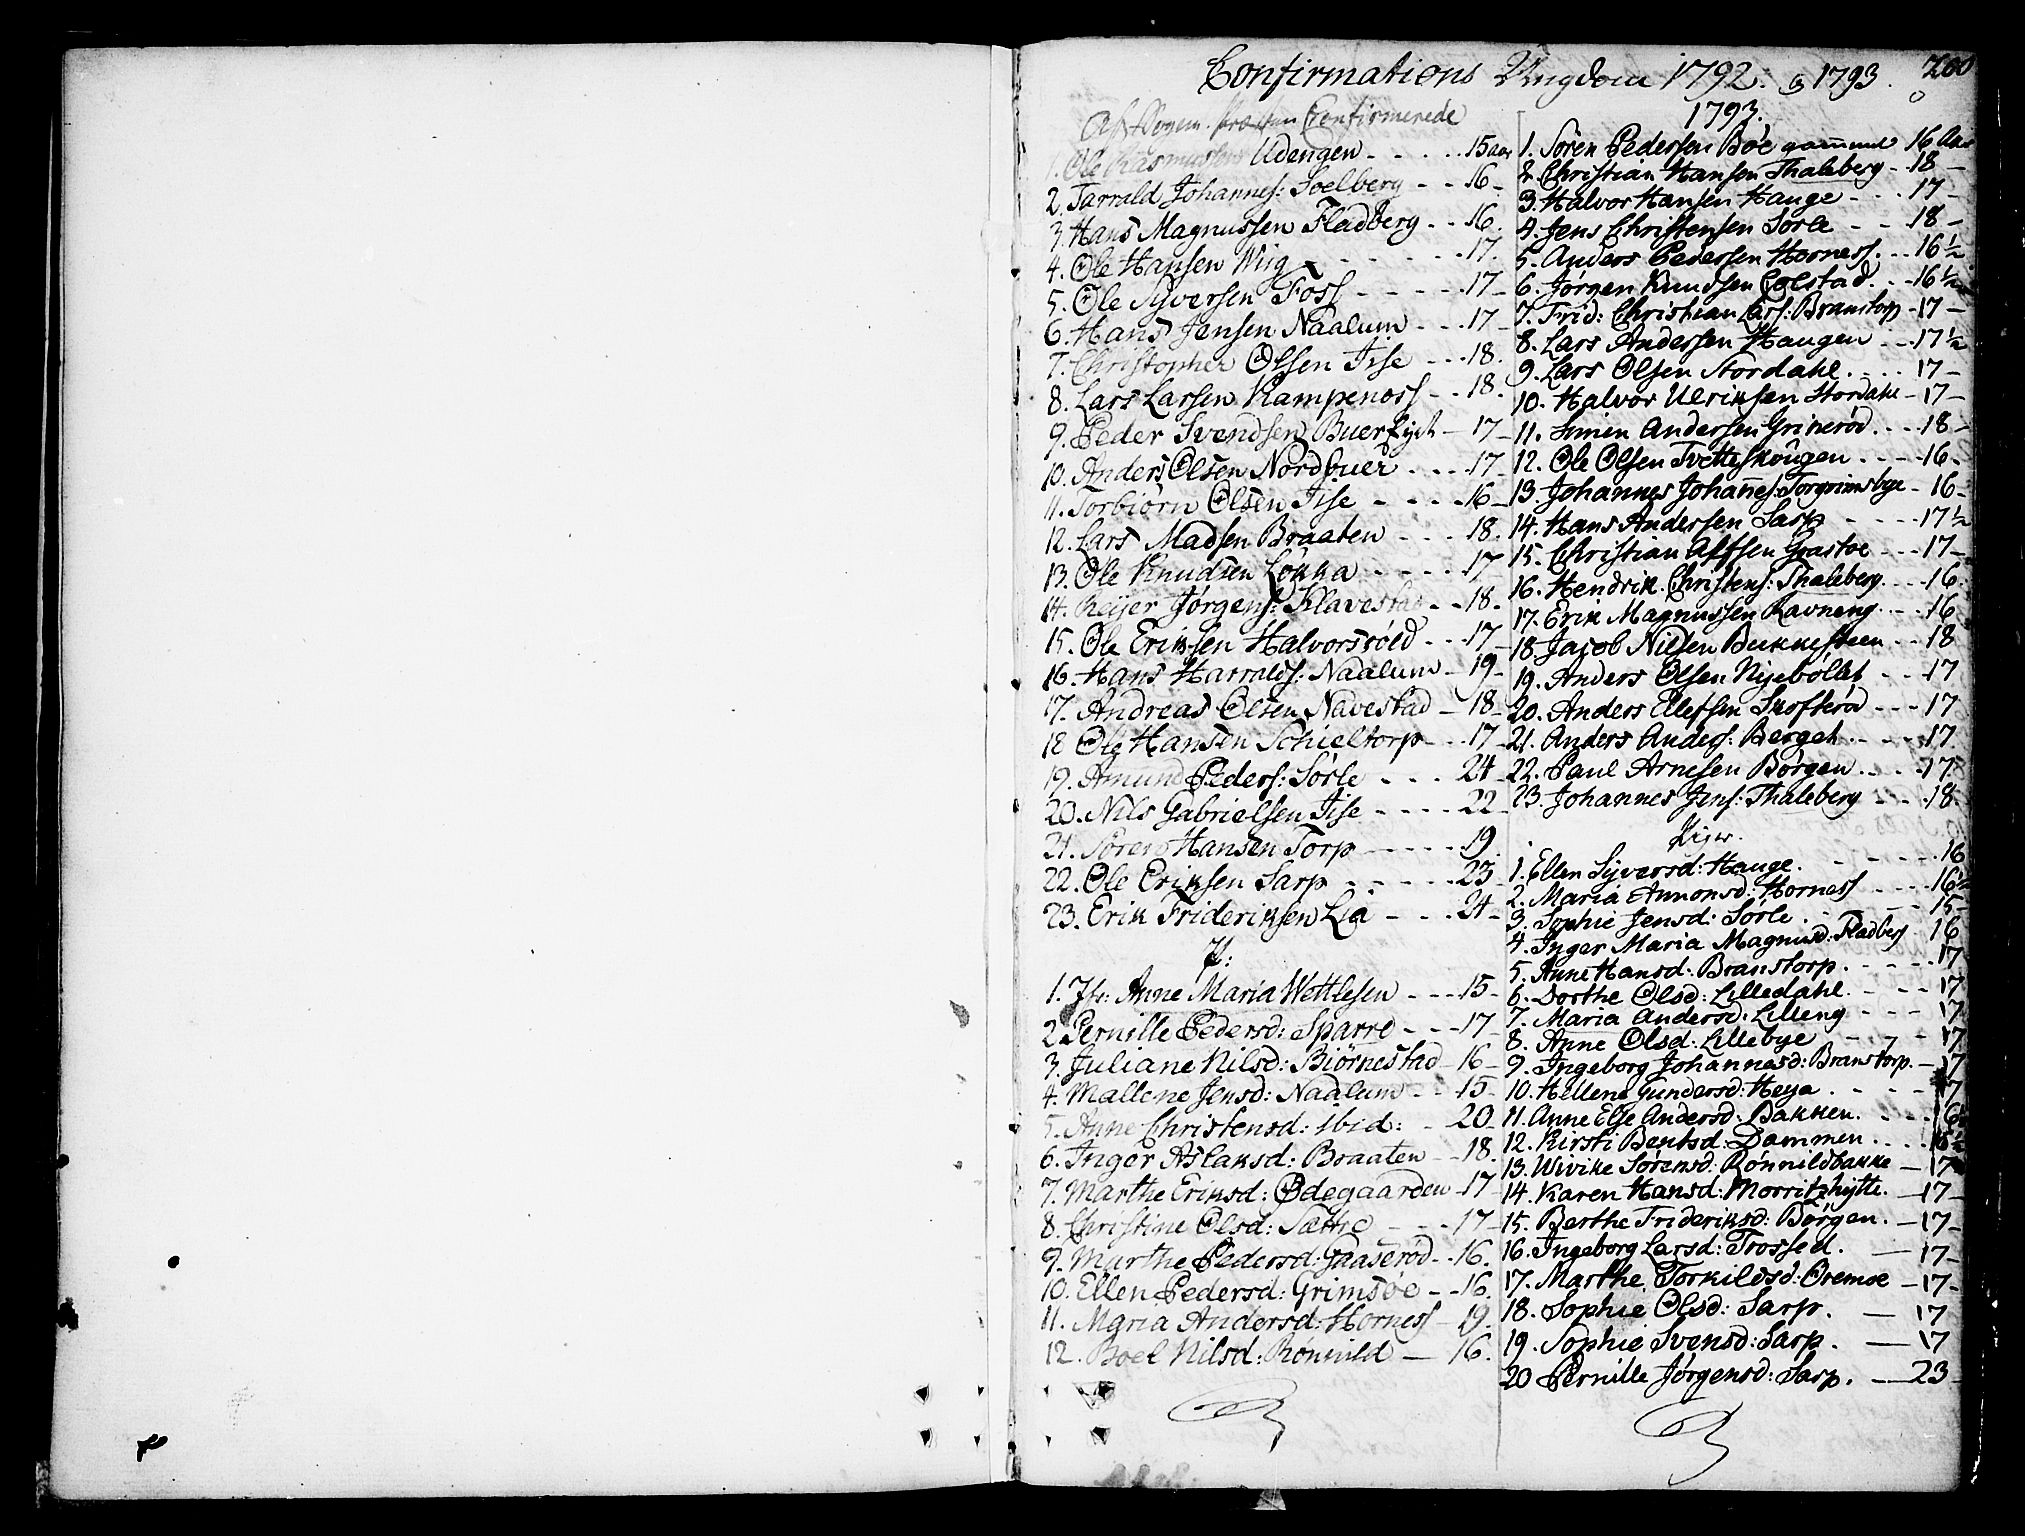 Confirmations Ungdom 1792. og 1793. 200
Af Sogne præsten Confirmerede
1. Ole Rasmussen Udengen - - - - 15 aar
2. Tarrald Johannes: Soelberg - - 16 -
3. Hans Magnussen Fladberg - - 16.
4. Ole Hansen Wiig - - - - - 17.
5. Ole Syversen Foss - - - - 17 -
6. Hans Jensen Naalum - - - 17 -
7. Christopher Olsen Tise - - - 18.
8. Lars Larsen Kampeness - - 18.
9. Peder Svendsen Buer - 17 -
10. Anders Olsen Nordbuer - - - 17 -
11. Torbiørn Olsen Tise - - - - 16 -
12. Lars Madsen Braaten - - - 18.
13. Ole Knudsen Løkka - - - - 17
14. Reijer Jørgens: Klavestad - - 18 -
15. Ole Eriksen Halvorsrøed - - 17 -
16. Hans Harralds: Naalum - 19 -
17. Andreas Olsen Navestad - 18 -
18 Ole Hansen Schieltorp - - 17 -
19. Amund Peders: Sørle - - - 24 -
20. Nils Gabrielsen Tise - - - - 22
21. Søren Hansen Torp - - - - 19.
22. Ole Eriksen Sarp - - - - - 23 -
23. Erik Frideriksen Lia - - - 24 -
P:
1. Jfr: Anne Maria Wettlesen - - - 15 -
2. Pernille Pedersd: Sparre - - - 17 -
3. Juliane Nilsd: Biørnestad - 16 -
4. Mallene Jensd: Naalum - - 15 -
5. Anne Christensd: Ibid: - 20 -
6. Inger Aslaksd: Braaten - - 18.
7. Marthe Eriksd: Ødegaarden - 17 -
8. Christine Olsd: Sættre - - - 17 -
9. Marthe Pedersd: Gaaserød - - 16.
10. Ellen Pedersd: Grimsøe - - 16.
11. Maria Andersd: Horness - 19.
12. Boel Nilsd: Ronnild - 16.
1793.
1. Søren Pedersen Bøe gammel 16 Aar
2. Christian Hansen Thaleberg - 18 -
3. Halvor Hansen Hauge - - - 17 -
4. Jens Christensen Sørle - - 18 -
5. Anders Pedersen Horness. - - 16 1/2
6. Jørgen Knudsen Colstad. - - 16 1/2
7. Frid: Christian Lars: Branstorp - 17 -
8. Lars Andersen Haugen - - - 17 1/2
9. Lars Olsen Stordahl. - - - 17 -
10. Halvor Ulriksen Stordahl - 17 -
11. Simen Andersen Grinerød. - - - 18 -
12. Ole Olsen Tvetteskougen - - - - 16 -
13. Johannes Johañes: Torgrimsbye - 16 -
14. Hans Andersen Sarp - - - - 17 1/2
15. Christian Alfsen Grastoe - - - 17 -
16. Hendrik Christens: Thaleberg. - - - 16.
17. Erik Magnussen Ravneng. - - - 16
18. Jacob Nilsen Bukkesteen - - 18
19. Anders Olsen Nyebølet - - - 17
20. Anders Ellefsen Skofterød - - - 17
21. Anders Anders: Berget. - - - 17.
22. Paul Arnesen Børgen. - - - 17.
23. Johannes Jens: Thaleberg - - - 18
Piger.
1. Ellen Syversd: Hauge. - - - - - 16
2. Maria Amonsd: Horness - - - - 16 1/2
3. Sophie Jensd: Sørle. - - - - 15 -
4. Inger Maria Magnusd: Fladberg - 16
5. Anne Hansd: Branstorp. - - - - 17.
6. Dorthe Olsd: Lilledahl. - - - 17
7. Maria Andersd: Lilleng - - - 17
8. Anne Olsd: Lillebye - - - 17
9. Ingeborg Johannesd: Branstorp. - 17
10. Hellene Gundersd: Heya. - - - - 17
11. Anne Else Andersd: Bakken. - - - 16 1/2
12. Kirsti Bentsd: Dammen. - - -
13. Wivike Sørensd: Rønnildbakke - 17
14. Karen Hansd: Morritzhytte. - 17 -
15. Berthe Frideriksd: Børgen. - 17 -
16. Ingeborg Larsd: Trossed. - 17 -
17. Marthe Torkildsd: Oremoe - 17 -
18. Sophie Olsd: Sarp. - 17
19. Sophie Svensd: Sarp. - 17
20 Pernille Jørgensd: Sarp. - 23